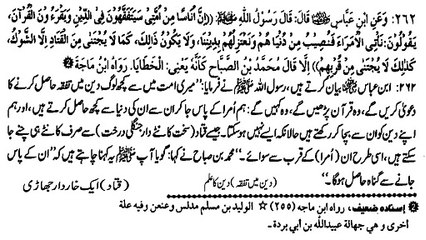 ٢٦٢: وَعَنِ ابْنِ عَبَّاسٍ ﷺ قَالَ: قَالَ رَسُوْلُ اللّٰهِ ﷺ: ((إِنَّ أُنَاسًا مِنْ أُمَّتِي سَيَتَفَقَّهُوْنَ فِي الدِّيْنِ وَيَقْرَءُوْنَ الْقُرْآنَ،
يَقُوْلُوْنَ: نَأْتِي الْأُمَرَاءَ فَنُصِيْبُ مِنْ دُنْيَاهُمْ وَنَعْتَزِلُهُمْ بِدِيْنِنَا، وَلَا يَكُوْنُ ذَالِكَ، كَمَا لَا يُجْتَنٰى مِنَ الْقَتَادِ إِلَّا الشَّوْكُ،
كَذٰلِكَ لَا يُجْتَنٰى مِنْ قُرْبِهِمْ)) إِلَّا قَالَ مُحَمَّدُ بْنُ الصَّبَّاحِ كَأَنَّهُ يَعْنِي: الْخَطَايَا. رَوَاهُ ابْنُ مَاجَةَ
٢٦٢: ابن عباس بیان کرتے ہیں، رسول اللہ ﷺ نے فرمایا: ”میری امت میں سے کچھ لوگ دین میں تفقہ حاصل کرنے کا
دعویٰ کریں گے، وہ قرآن پڑھیں گے، وہ کہیں گے: ہم امرا کے پاس جا کر ان سے ان کی دنیا سے کچھ حاصل کرتے ہیں، اور ہم
اپنے دین کو ان سے بچا کر رکھتے ہیں حالانکہ ایسے نہیں ہو سکتا، جیسے قتاد (سخت کانٹے دار جنگلی درخت) سے صرف کانٹے ہی چنے جا
سکتے ہیں، اسی طرح ان (امرا) کے قرب سے سوائے۔“ محمد بن صباح نے کہا: گویا آپ ﷺ یہ کہنا چاہتے ہیں کہ ”ان کے پاس
جانے سے گناہ حاصل ہو گا۔“ (دین میں تفقہ) دین کا علم (قتاد) ایک خاردار جھاڑی
إسناده ضعيف، رواه ابن ماجه (٢٥٥) ☆ الوليد بن مسلم مدلس وعنعن وفيه علة
أخرى و هي جهالة عبيدالله بن أبي بردة۔